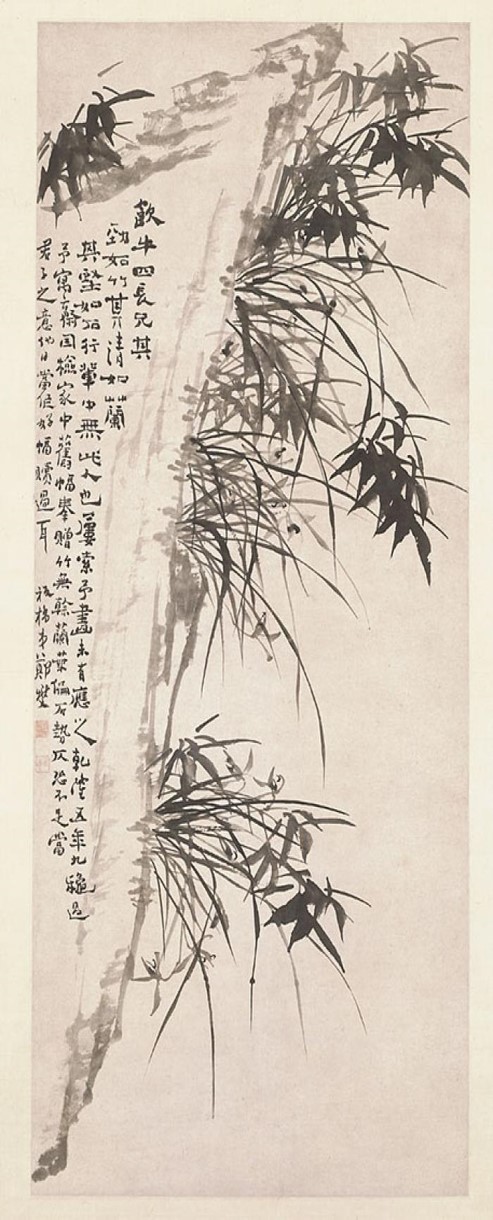 歙牛四長兄其
勁如竹其清如蘭
其堅如石行輩中無此人也屢索予畫未有應之乾隆五年九穐過
予寓齋因檢家中舊幅奉贈竹無餘蘭葉偏石勢仄恐不足當
君子之意他日當作好幅贖過耳 板橋弟鄭燮